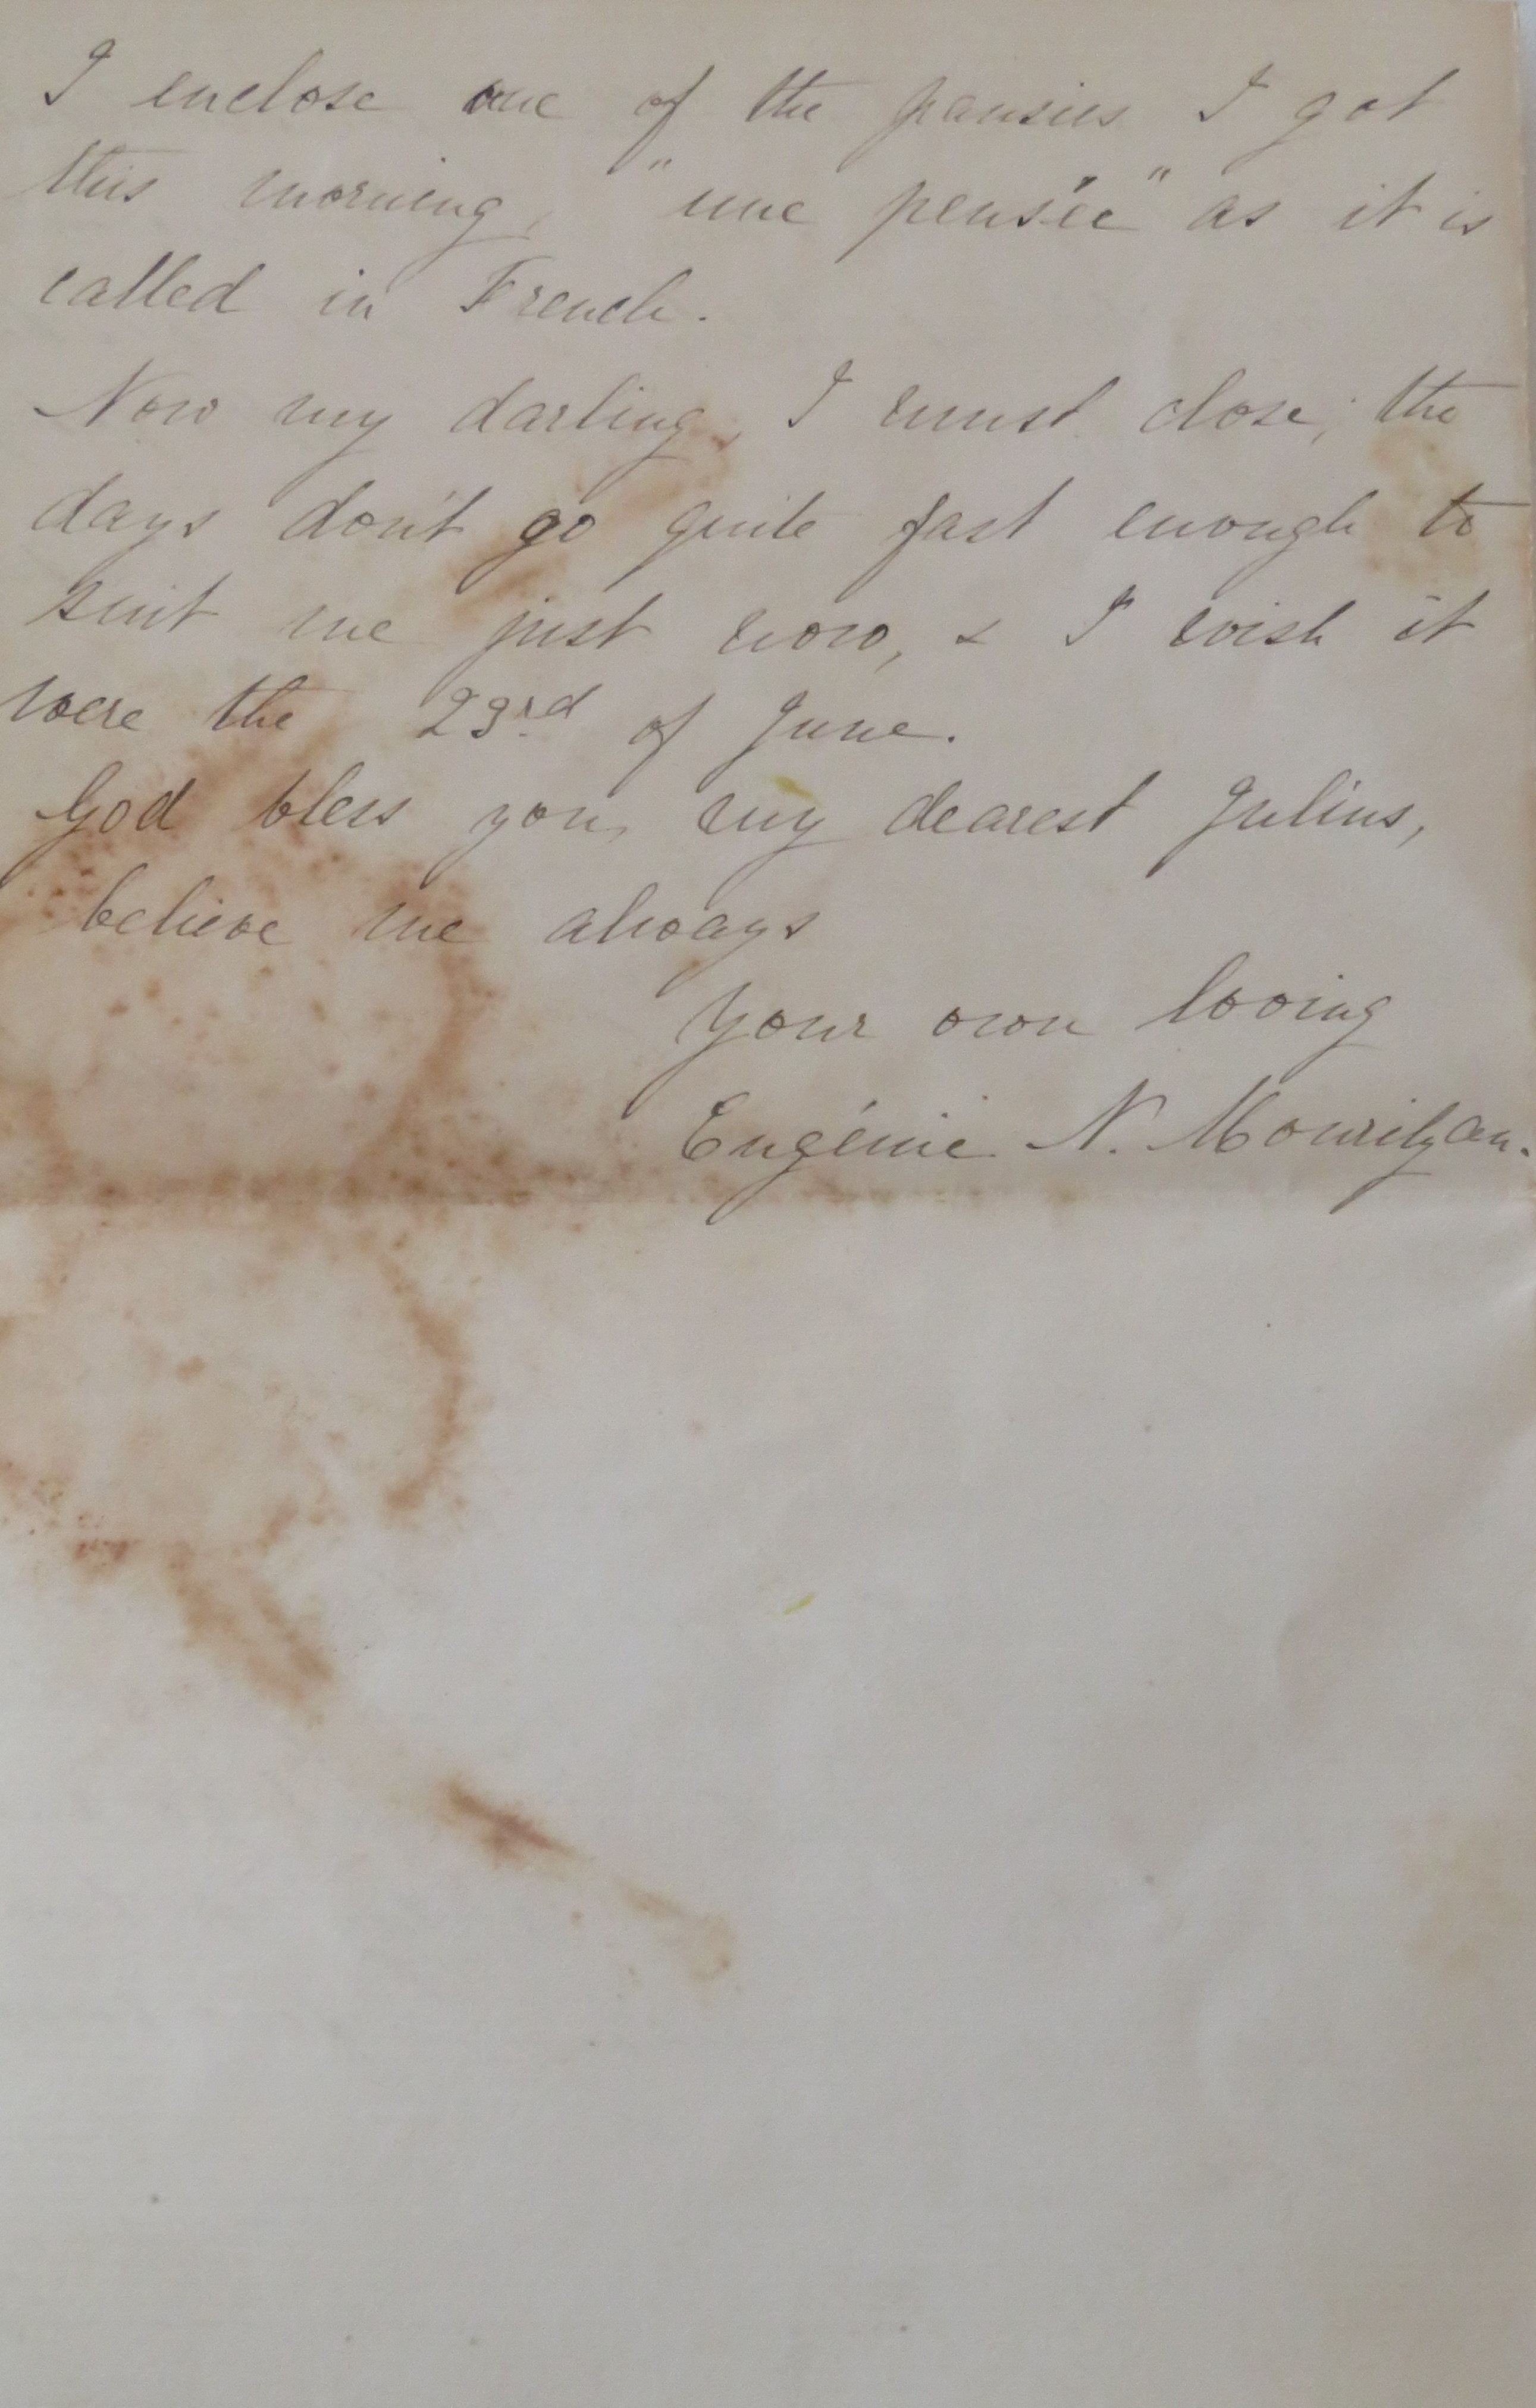 I enclose one of the pansies I got
this morning, "une pensée" as it is
called in French.
Now my darling, I must close; the
days don't go quite fast enough to
suit me just now, & I wish it
were the 23rd of June.
God bless you, my dearest Julius,
believe me always
Your own loving
Eugénie N. Mourilyan.